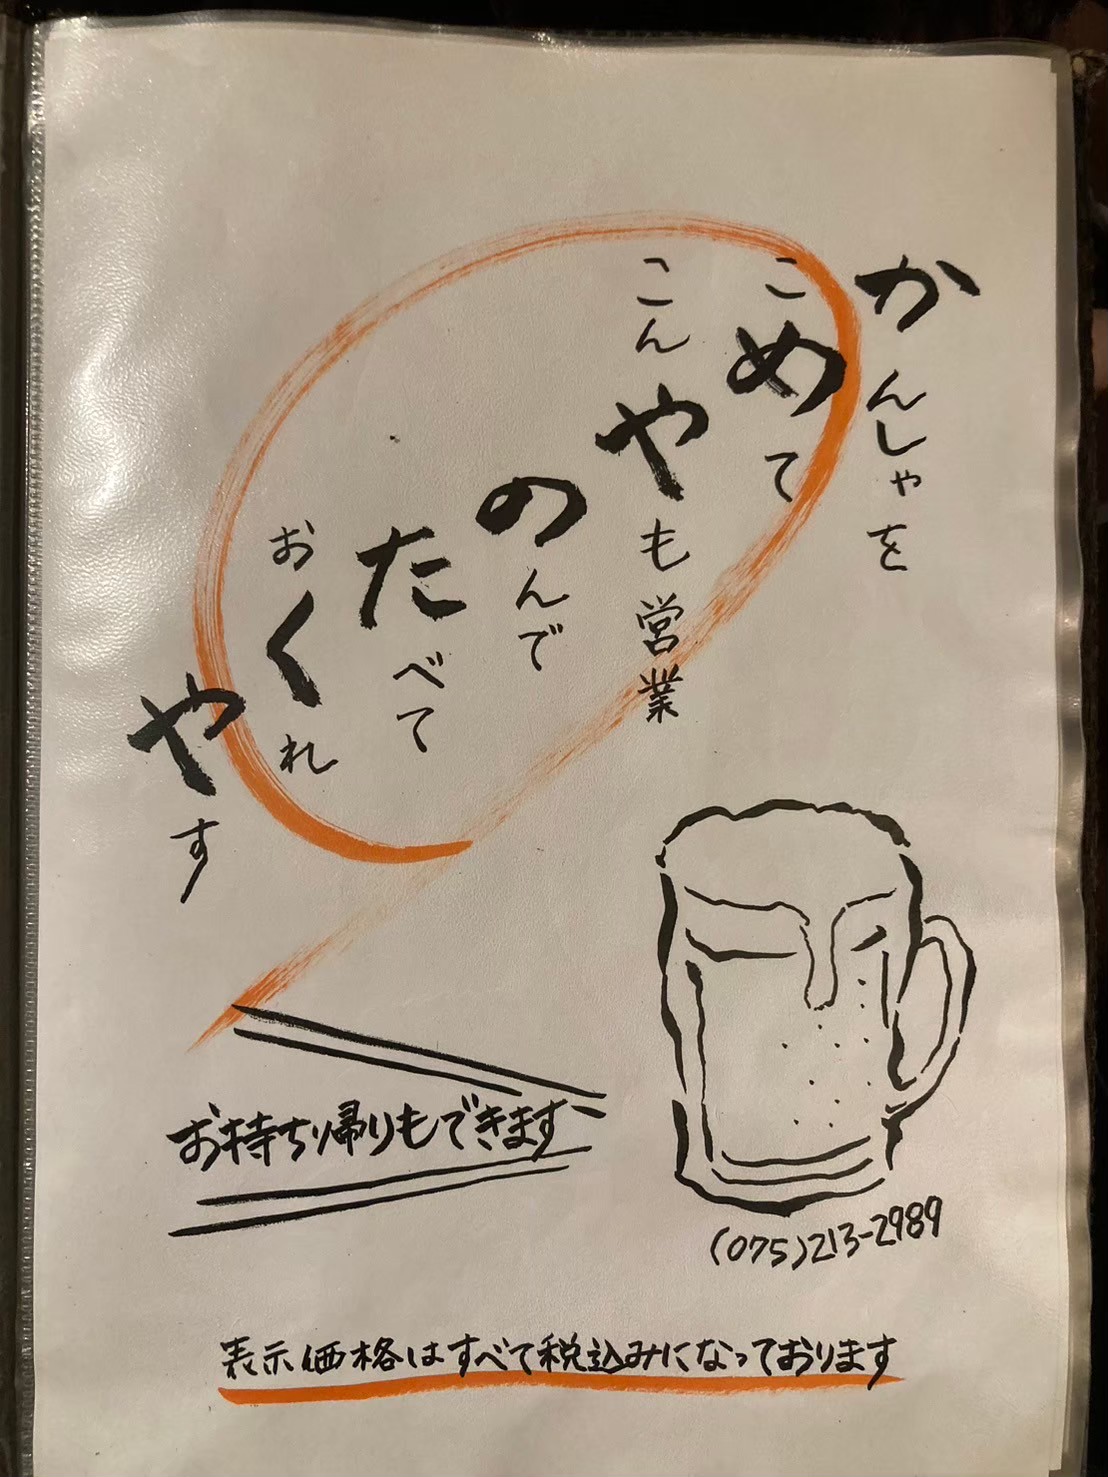 かんしゃを
こめて
こんやも営業
のんで
たべて
おくれ
やす
お持ち帰りもできます
(075)213-2989
表示価格はすべて税込みになっております